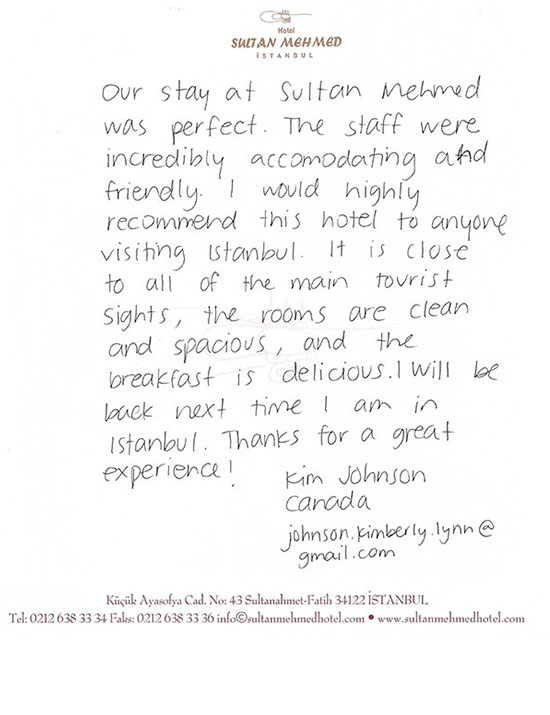 Hotel
SULTAN MEHMED
İSTANBUL
Our stay at Sultan Mehmed
was perfect. The staff were
incredibly accomodating and
friendly. I would highly
recommend this hotel to anyone
visiting Istanbul. It is close
to all of the main tourist
sights, the rooms are clean
and spacious, and the
breakfast is delicious. I will be
back next time I am in
Istanbul. Thanks for a great
experience!
Kim Johnson
Canada
johnson.kimberly.lynn@
gmail.com
Küçük Ayasofya Cad. No: 43 Sultanahmet-Fatih 34122 İSTANBUL
Tel: 0212 638 33 34 Faks: 0212 638 33 36 info©sultanmehmedhotel.com • www.sultanmehmedhotel.com